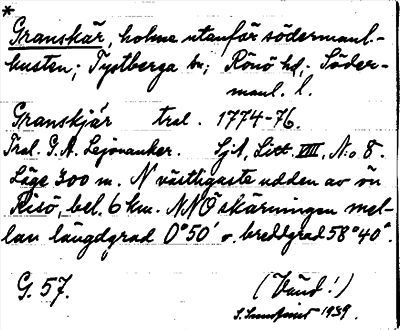 *
Granskär, holme utanför södermanl.-
kusten; Tystberga sn; Rönö hd; Söder-
manl. l.
Granskjär tral. 1774-76.
Tral. G. A. Lejonanker. SjA, Litt. VIII, N:o 8.
Läge 300 m. N västligaste udden av ön
Risö, bel. 6 km. NNO skärningen mel-
lan längdgrad 0°50' o. breddgrad 58°40'.
G. 57. (Vänd!)
1939.